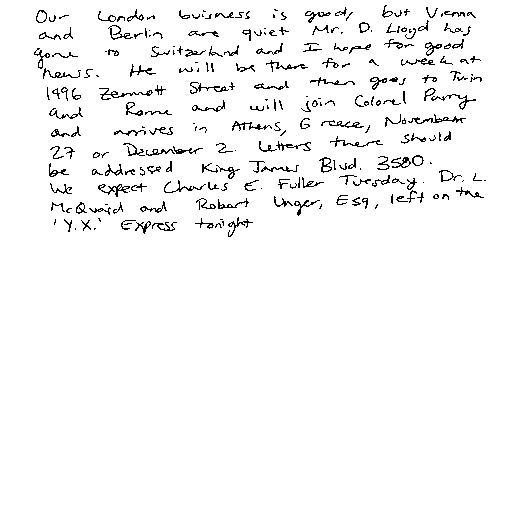 Our London buisness is good, but Vienna
and Berlin are quiet Mr. D. Lloyd has
gone to Switzerland and I hope for good
news. He will be there for a week at
1496 Zermott Street and then goes to Turin
and Rome and will join Colonel Parry
and arrives in Athens, Greece, November
27 or December 2. Letters there should
be addressed King James Blvd. 3580.
We expect Charles E. Fuller Tuesday. Dr. L.
McQuaid and Robert Unger, Esq, left on the
'Y.X.' Express tonight